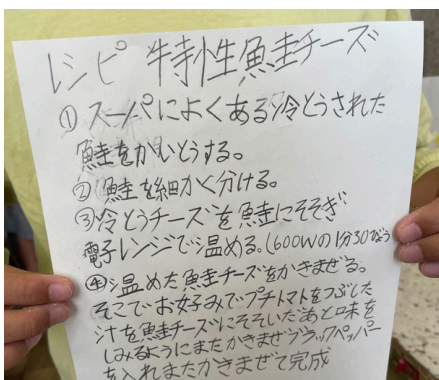 レシピ 特性鮭チーズ
①スーパによくある冷とうされた
鮭をかいとうする。
②鮭を細かく分ける。
③冷とうチーズを鮭にそそぎ
電子レンジで温める。(600Wの1分30びょう
④温めた鮭チーズをかきまぜる。
そこでお好みでプチトマトをつぶした
汁を鮭チーズにそそいだあと味を
しみるようにまたかきまぜブラックペッパー
を入れまたかきまぜて完成